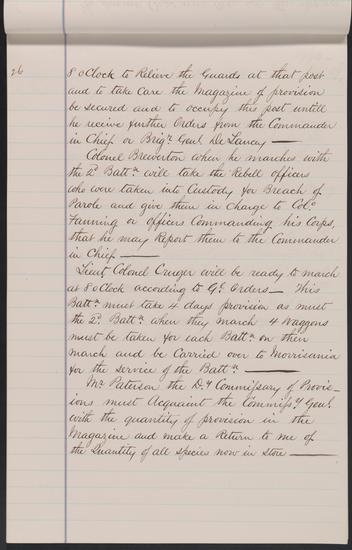 26
8 oClock to Relieve the Guards at that post
and to take Care the Magazine of provision
be secured and to occupy this post untill
he receive further Orders from the Commander
in Chief or Brigr. Genl. De Lancey —
Colonel Brewerton when he marches with
the 2d. Battn. will take the Rebell officers
who were taken into Custody for Breach of
Parole and give them in Charge to Colo.
Fanning or officers Commanding his Corps,
that he may Report them to the Commander
in Chief —
Lieut Colonel Cruger will be ready to march
at 8 oClock according to Gl. Orders — This
Battn. must take 4 days provision as must
the 2d. Battn. when they march 4 Waggons
must be taken for each Battn. on their
march and be Carried over to Morrisania
for the Service of the Battn. —
Mr. Paterson the Dy. Commissary of Provis-
ions must Acquaint the Commissy. Genl.
with the quantity of provision in the
Magazine and make a Return to me of
the Quantity of all species now in Store —